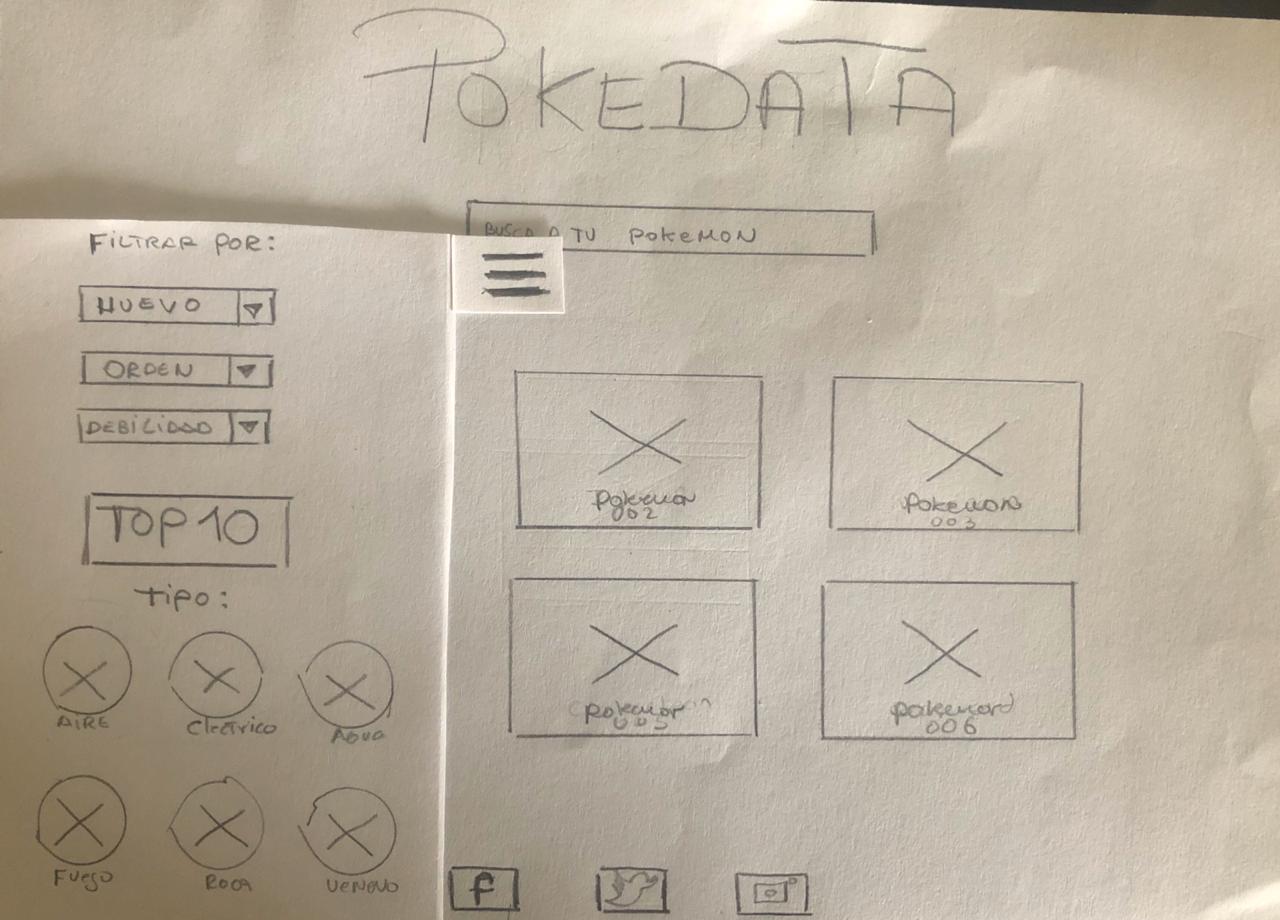 POKEDATA
BUSCA A TU POKEMON
FILTRAR POR:
NUEVO
ORDEN
DEBILIDAD
TOP 10
TIPO:
AIRE
Electrico
AGUA
FUEGO
ROCA
VENENO
Pokemon
002
Pokemon
003
Pokemon
005
pokemon
006
f